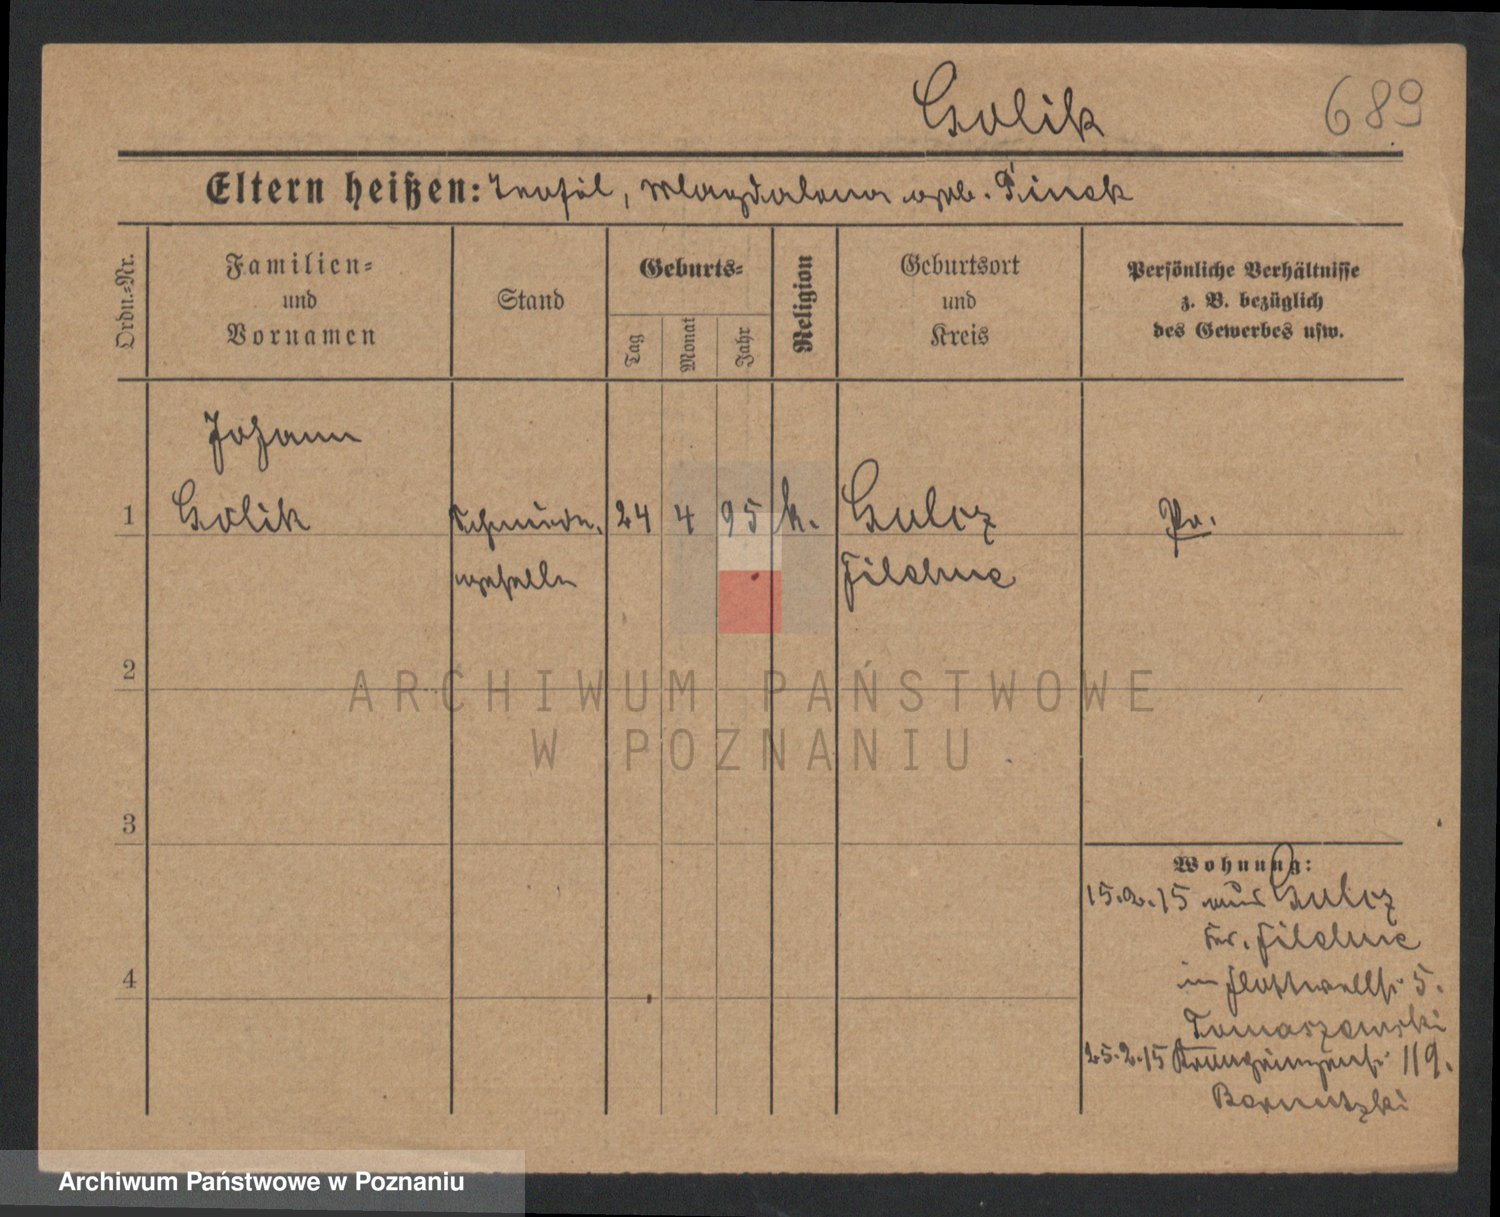 Golik 689
Eltern heißen: Teofil, Magdalena geb. Pinek
Ordn.-Nr.
Familien-
und
Vornamen
Stand
Geburts-
Tag
Monat
Jahr
Religion
Geburtsort
und
Kreis
Persönliche Verhältnisse
z. B. bezüglich
des Gewerbes usw.
Johann
1 Golik Schmiede- 24 4 95 k. Gulcz Pr.
geselle Filehne
2
3
4
Wohnung:
15.2.15 aus Gulcz
Kr. Filehne
in Flottwellstr 5.
Tomaszewski
25.2.15 Kronprinzenstr 119.
ARCHIWUM PAŃSTWOWE
W POZNANIU
Archiwum Państwowe w Poznaniu